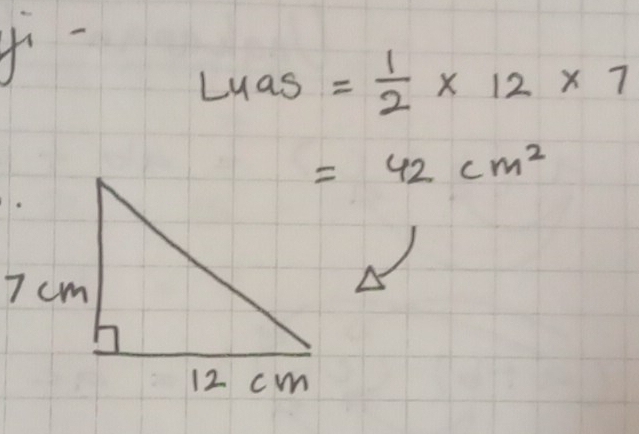 Luas = 1/2 × 12 × 7
= 42 cm²
7 cm
12 cm